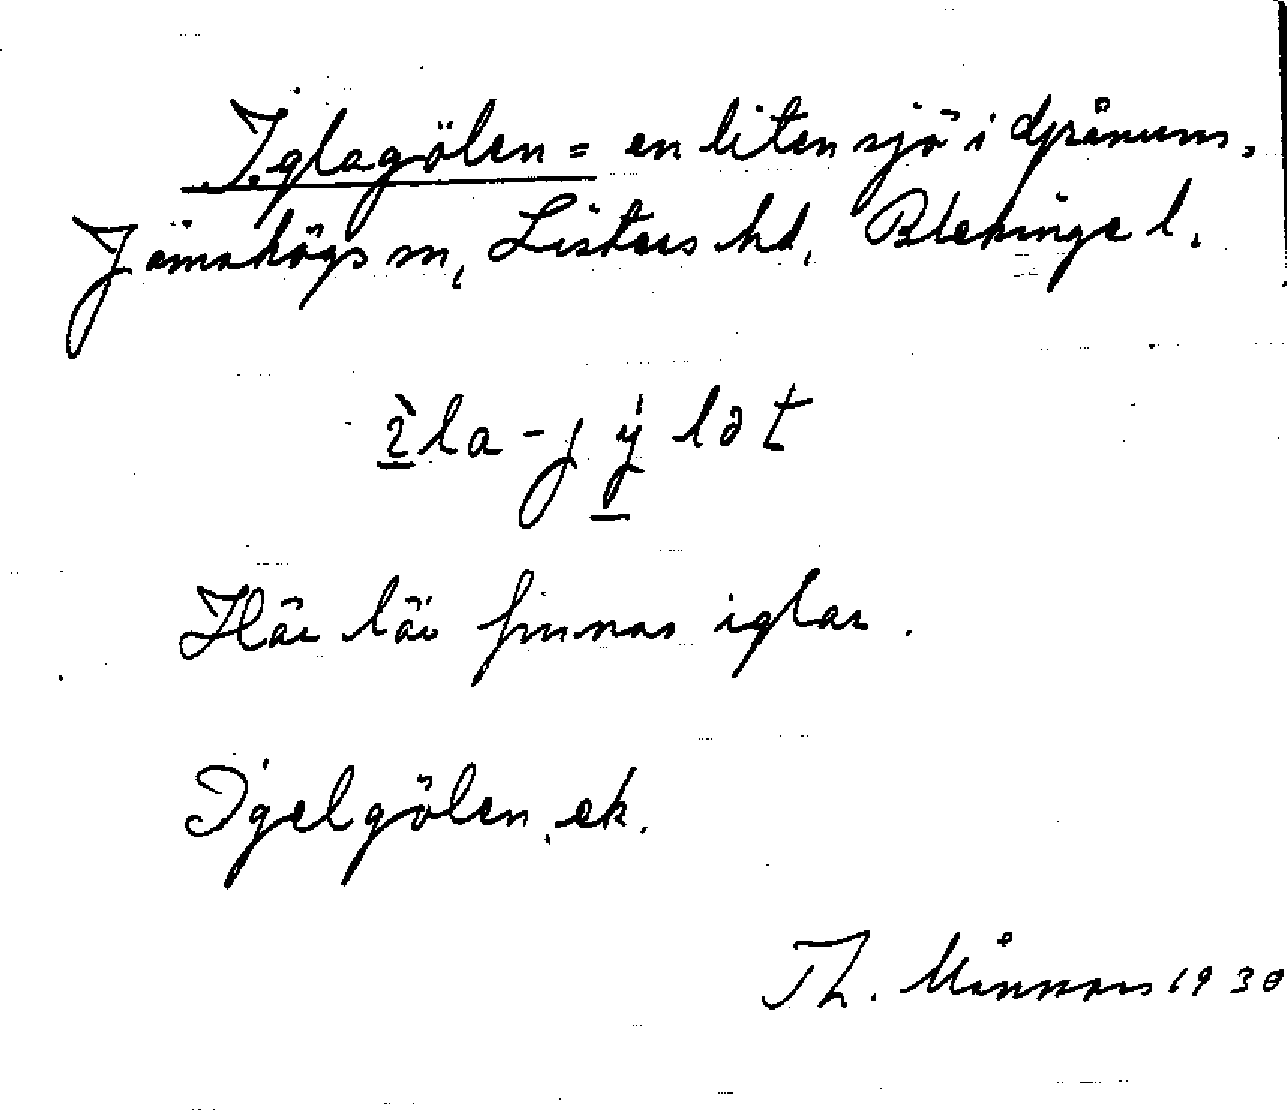 Iglagölen = en liten sjö i
Jämshögs sn, Listers hd, Blekinge l.
Här lär finnas iglar.
Igelgölen, ek.
Th. 1930